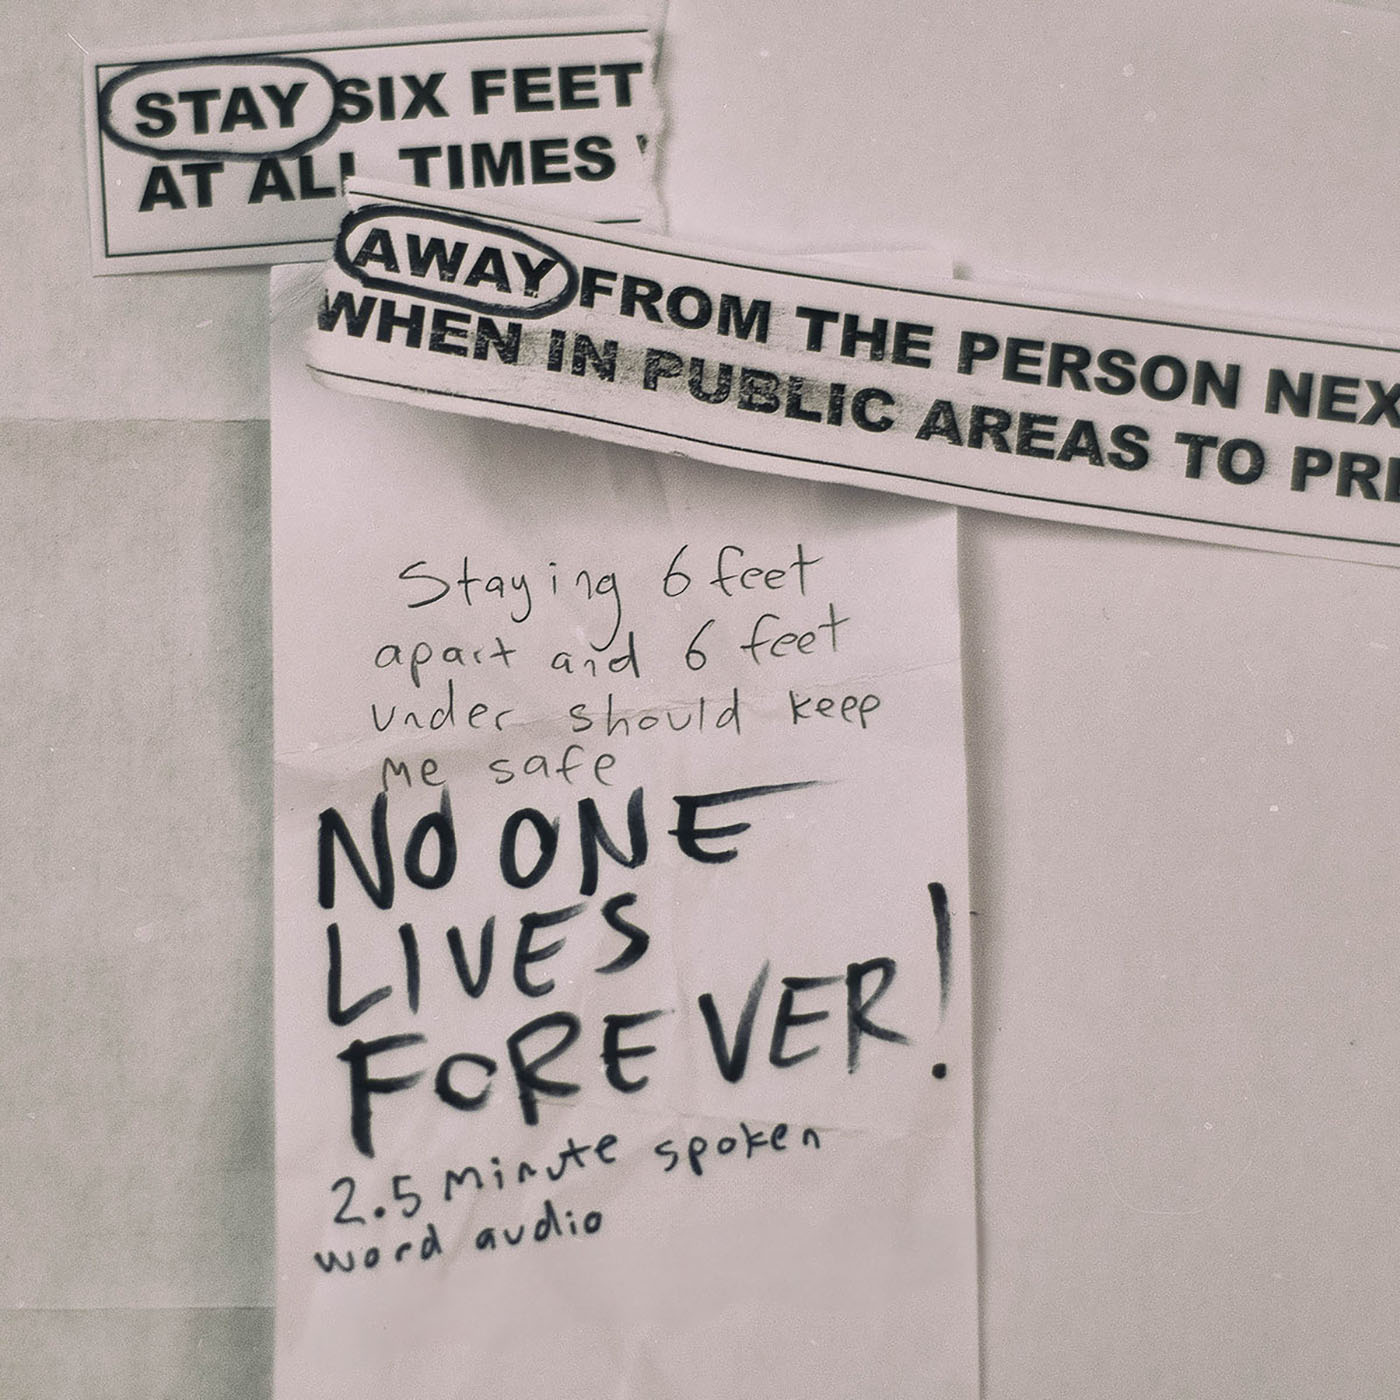 STAY SIX FEET
AT ALL TIMES
AWAY FROM THE PERSON NEX
WHEN IN PUBLIC AREAS TO PRE
Staying 6 feet
apart and 6 feet
under should keep
me safe
NO ONE
LIVES
FOREVER!
2.5 minute spoken
word audio